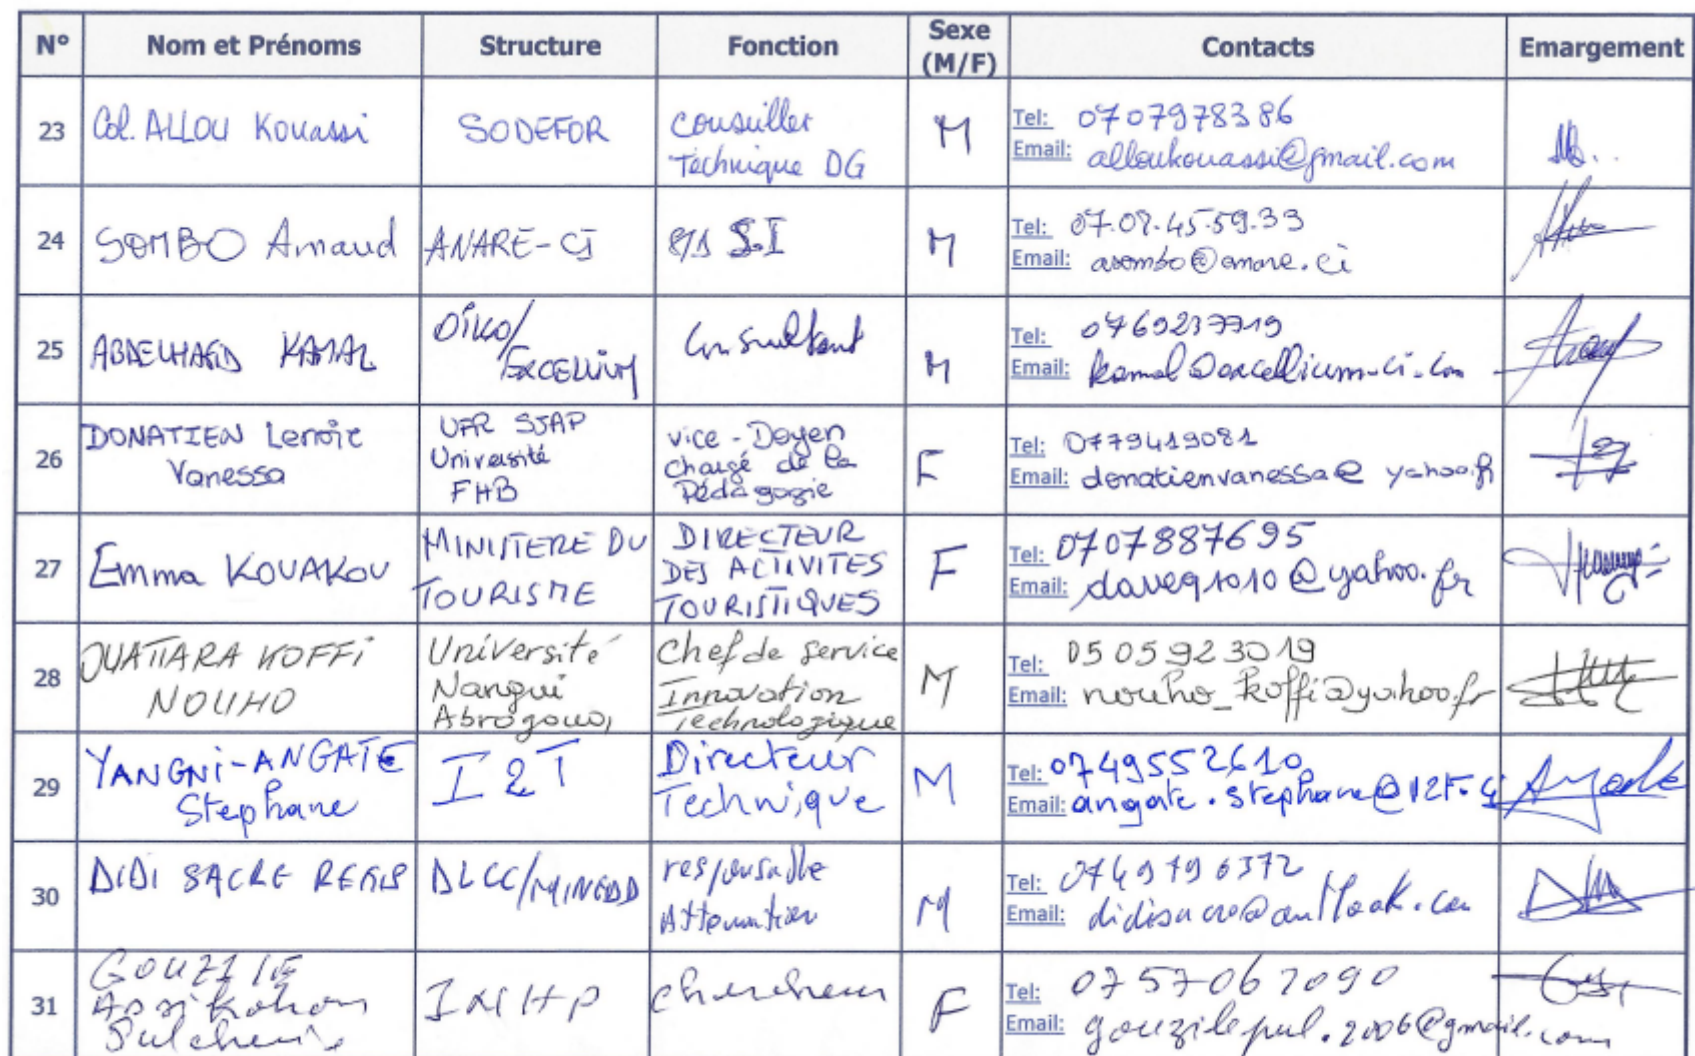 N° Nom et Prénoms Structure Fonction Sexe (M/F) Contacts Emargement
23 Col. ALLOU Kouassi SODEFOR Conseiller Technique DG M Tel: 0707978386
Email: alloukouassi@gmail.com
24 SOMBO Arnaud ANARE-CI S.I M Tel: 07.07.45.59.33
Email: asombo@anare.ci
25 ABDELHAFID KAMAL OÏKO/ EXCELLIUM Consultant M Tel: 0769237719
Email: kamal@excellium-ci.com
26 DONATIEN Leroie Vanessa UFR SJAP Université FHB Vice-Doyen chargé de la Pédagogie F Tel: 0779419081
Email: donatienvanessa@yahoo.fr
27 Emma KOUAKOU MINISTERE DU TOURISME DIRECTEUR DES ACTIVITES TOURISTIQUES F Tel: 0707887695
Email: daveq1010@yahoo.fr
28 OUATTARA KOFFI NOUHO Université Nangui Abrogoua, Chef de service Innovation Technologique M Tel: 0505923019
Email: nouho_koffi@yahoo.fr
29 YANGNI-ANGATE Stephane I2T Directeur Technique M Tel: 0749552610
Email: angate.stephane@i2t.ci
30 DIDI SACRE REGIS DLCC/MINEDD responsable Attenuation M Tel: 0749796372
Email: didisacre@outlook.com
31 GOUZILE INHP Chercheur F Tel: 0757067090
Email: gouzilepul.2006@gmail.com